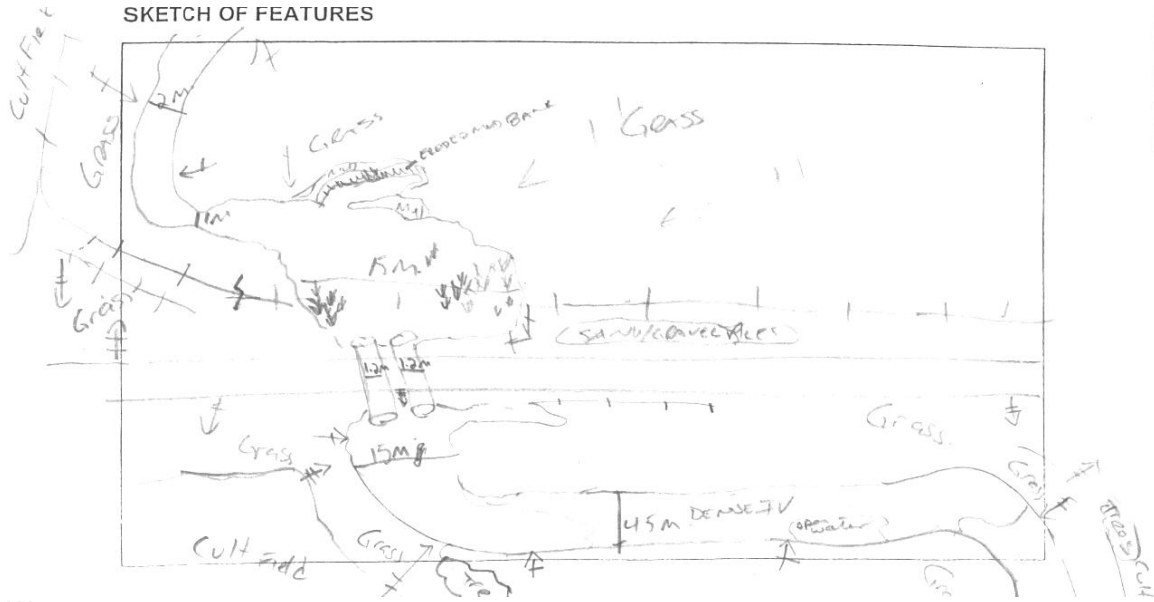 SKETCH OF FEATURES
Cult Field
2M
Grass
Grass
ERODED MUD BANK
Grass
1M
15M
Grass
SAND/GRAVEL PILES
1.2M
1.2M
Grass
Grass
15M
Grass
45M
DENSE IV
OPEN
WATER
Cult
Field
Grass
Tree
Trees
Cult